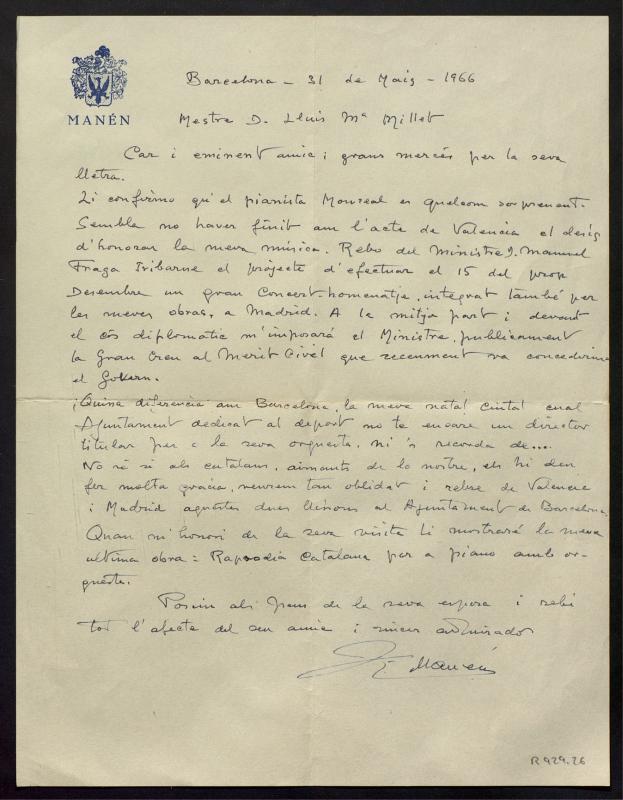 MANÉN
Barcelona - 31 de Maig - 1966
Mestre D. Lluis Mª Millet
Car i eminent amic i grans mercés per la seva
lletra.
Li confirmo qu'el pianista Monreal es quelcom sorprenent.
Sembla no haver finit am l'acte de Valencia el desig
d'honorar la meva música. Rebo del Ministre D. Manuel
Fraga Iribarne el projecte d'efectuar el 15 del prop
Desembre un gran Concert-homenatje, integrat també per
les meves obras, a Madrid. A la mitja part i devant
el còs diplomatic m'imposará el Ministre, publicament
la Gran Creu al Merit Civil que recenment va concedirme
el Govern.
¡Quina diferencia am Barcelona, la meva natal ciutat cual
Ajuntament dedicat al deport no te encare un director
titular per a la seva orquesta, ni 's recorda de...
No sé si als catalans, aimants de lo nostre, els hi deu
fer molta gracia, veurem tan oblidat i rebre de Valencia
i Madrid aquestes dues lliçons al Ajuntament de Barcelona.
Quan m'honori de la seva visita li mostraré la meva
ultima obra: Rapsodia Catalana per a piano amb or-
questa.
Posim als peus de la seva esposa i rebi
tot l'afecte del seu amic i sincer admirador
Manén
R 929.26